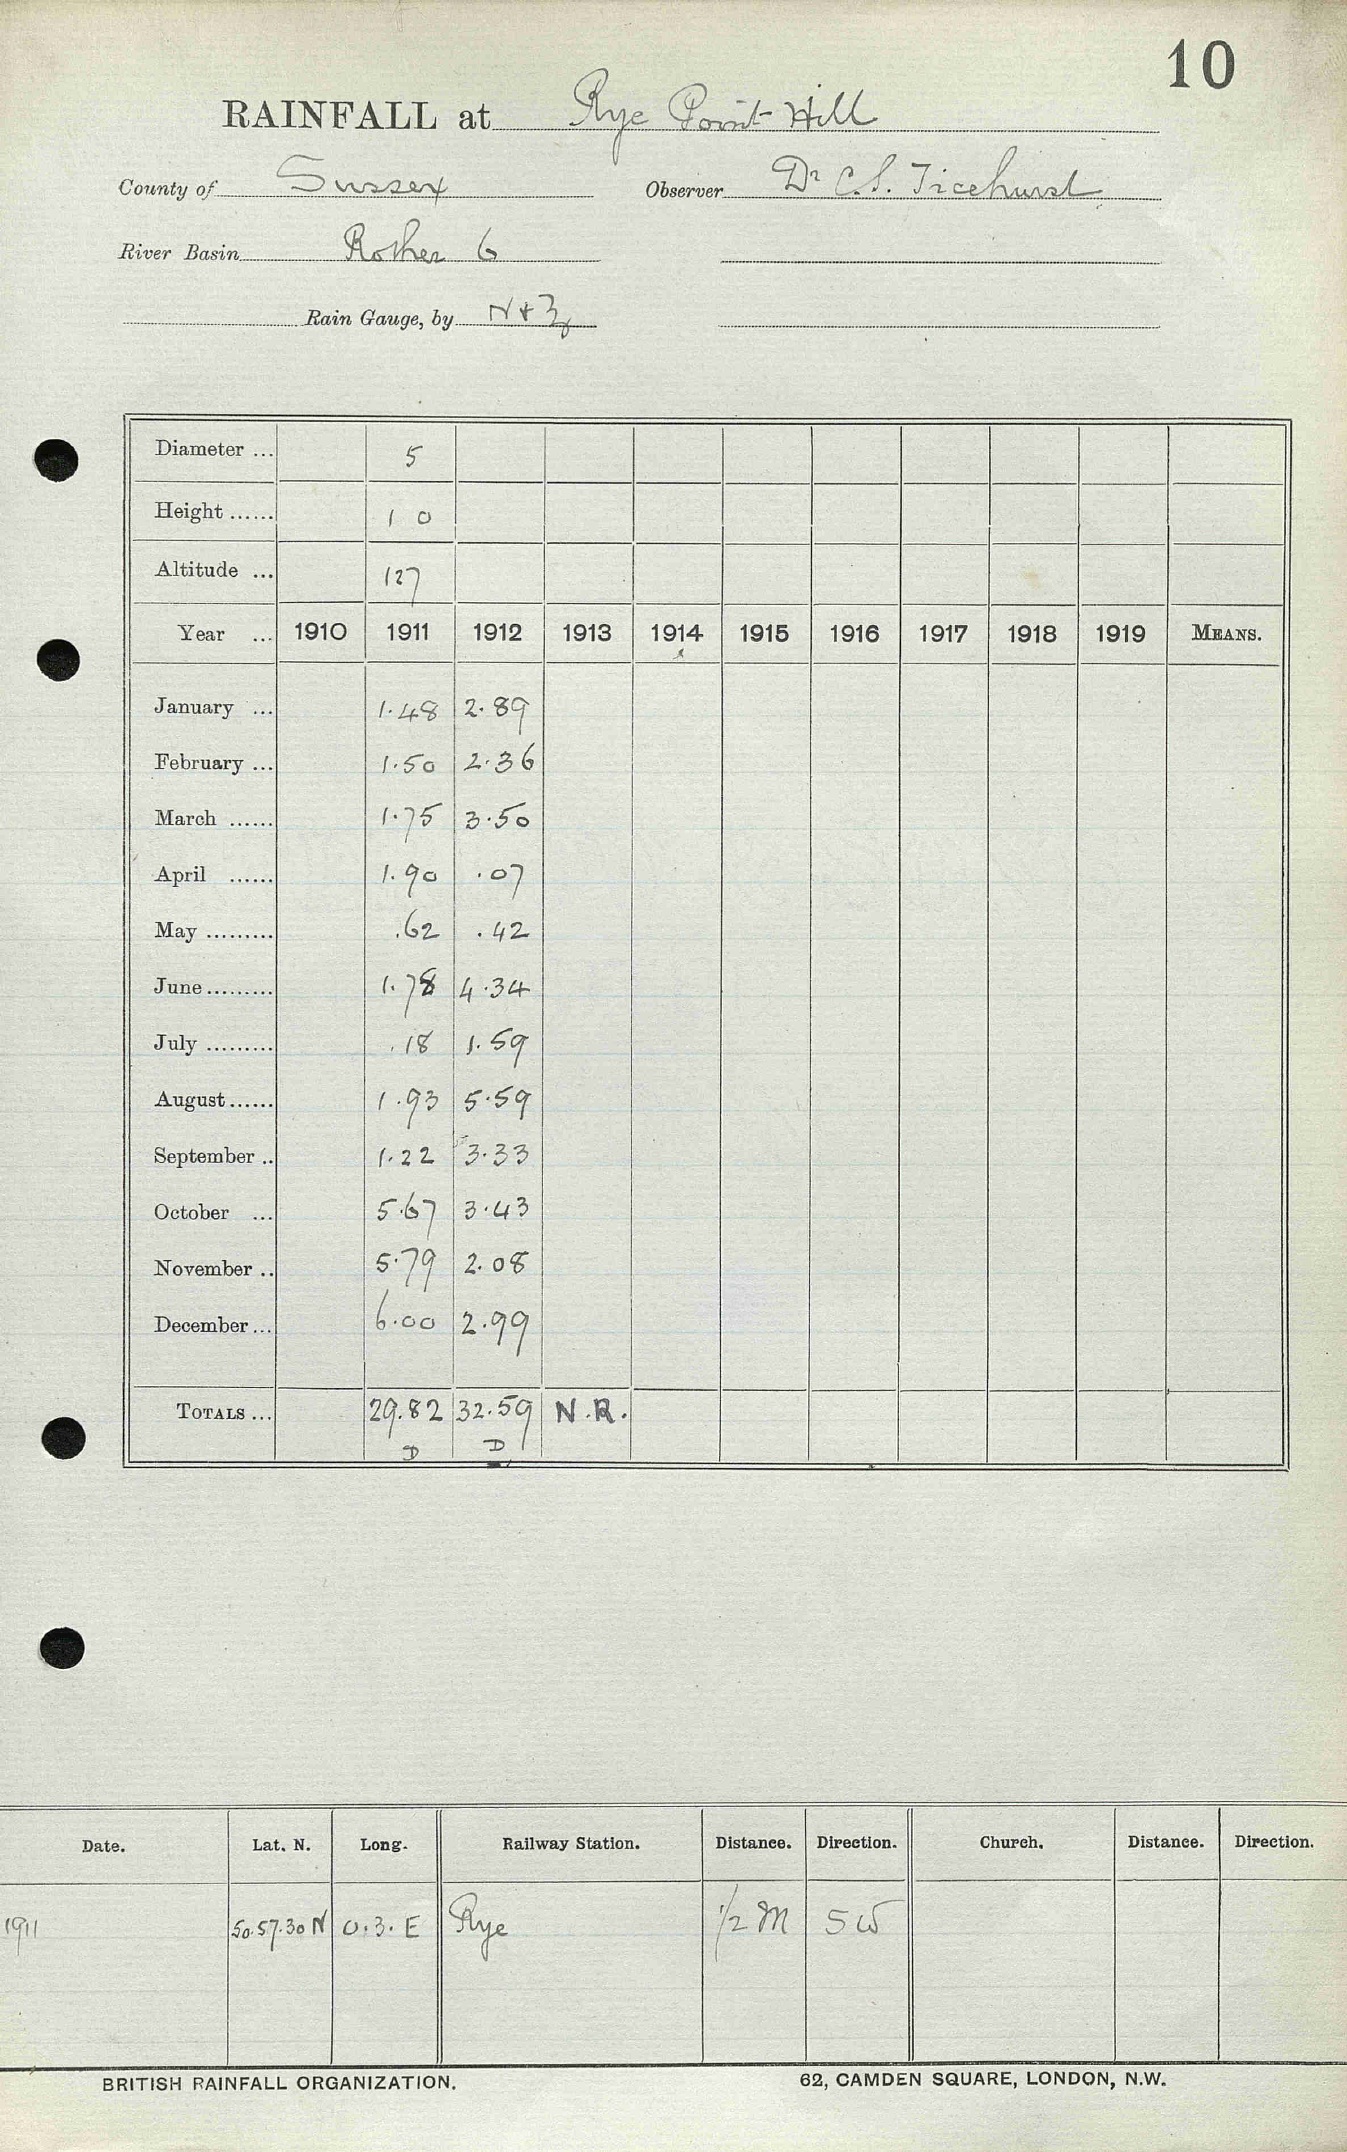 10
RAINFALL at Rye Point Hill
County of Sussex Observer Dr C.S. Ticehurst
River Basin Rother 6
Rain Gauge, by N & Z
Diameter ... 5
Height ...... 1 0
Altitude ... 127
Year ... 1910 1911 1912 1913 1914 1915 1916 1917 1918 1919 MEANS.
January ... 1.48 2.89
February ... 1.50 2.36
March ...... 1.75 3.50
April ...... 1.90 .07
May ......... .62 .42
June ......... 1.78 4.34
July ......... .18 1.59
August ...... 1.93 5.59
September .. 1.22 3.33
October ... 5.67 3.43
November .. 5.79 2.08
December ... 6.00 2.99
TOTALS ... 29.82 32.59 N.R.
D D
Date. Lat. N. Long. Railway Station. Distance. Direction. Church. Distance. Direction.
1911 50.57.30 N 0.3. E Rye 1/2 M SW
BRITISH RAINFALL ORGANIZATION. 62, CAMDEN SQUARE, LONDON, N.W.